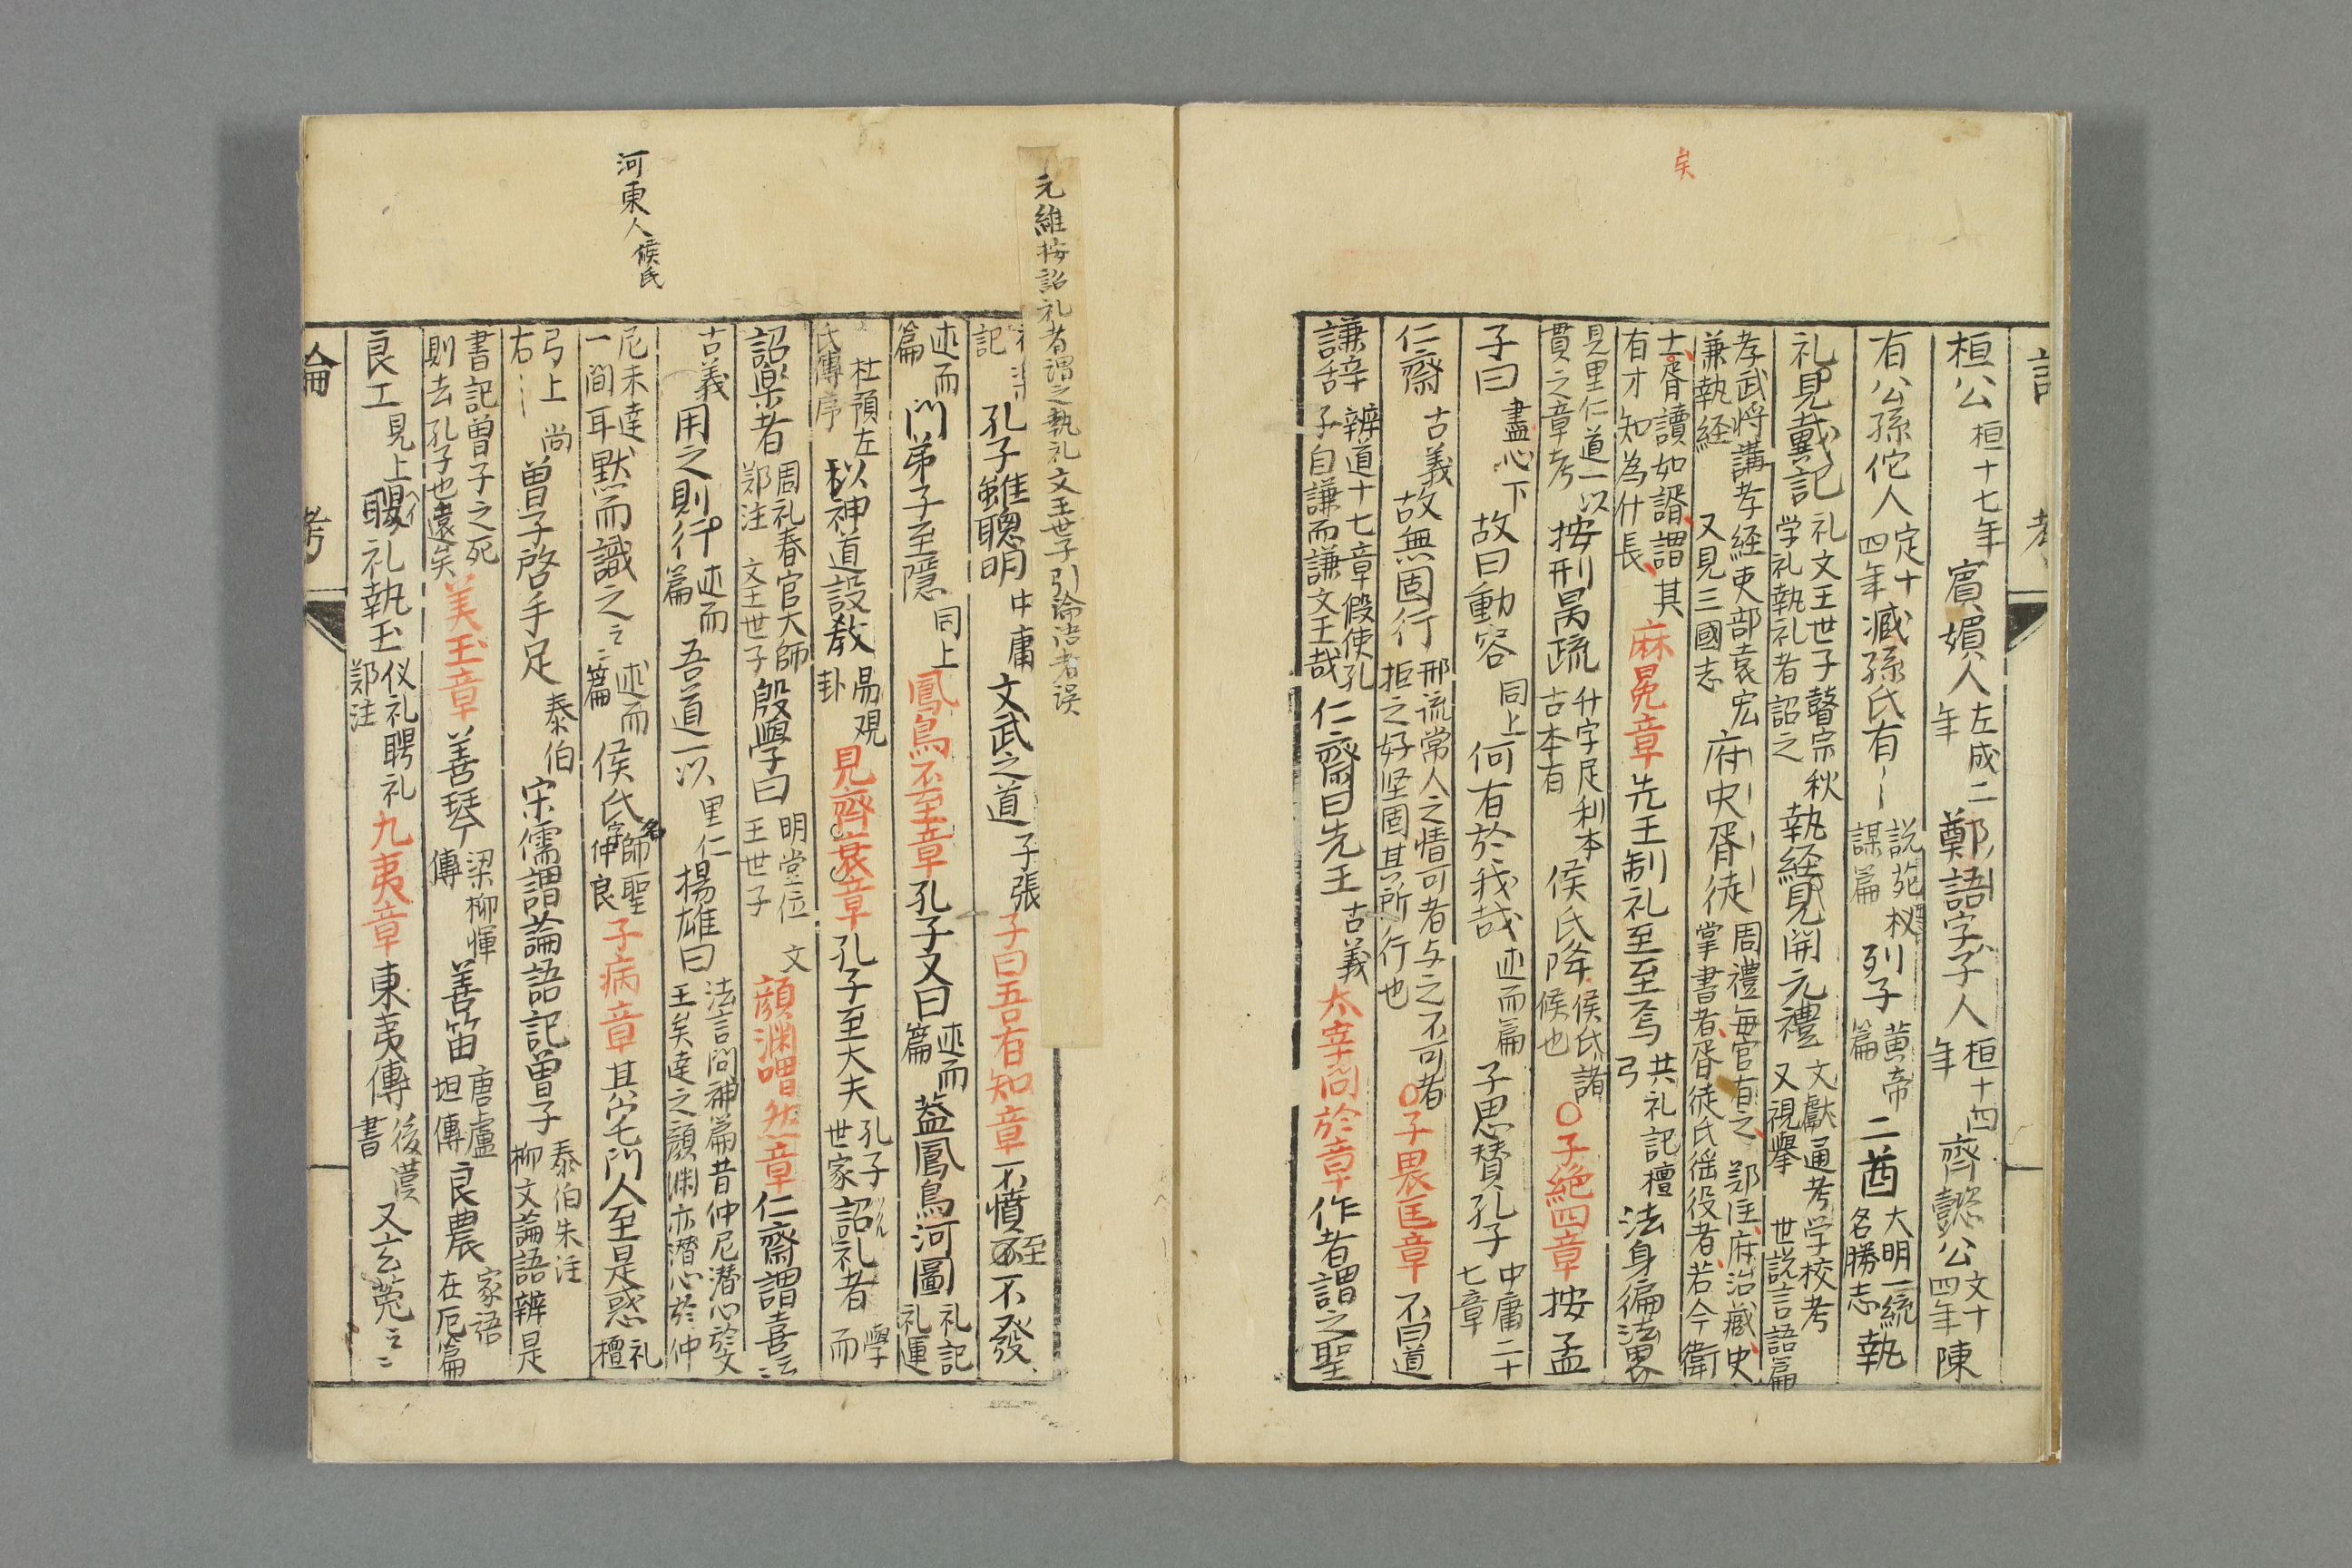 矣
語 考
桓公 桓十七年 賓媚人 左成二年 鄭語字子人 桓十四年 齊懿公 文十四年 陳
有公孫佗人 定十四年 臧孫氏有 説苑权謀篇 列子 黄帝篇 二酋 大明一統名勝志 執
礼見戴記 礼文王世子瞽宗秋学礼執礼者詔之 執経見開元禮 文獻通考学校考又視擧 世説言語篇
孝武将講孝経吏部袁宏兼執経 又見三國志 府史胥徒 周禮毎官有之 鄭注府治藏史掌書者胥徒民徭役者若今衛
士胥讀如諝謂其有才知為什長 麻冕章 先王制礼至至焉 礼記檀弓 法身徧法界
見里仁道一以貫之章考 按刑昺疏 升字足利本古本有 侯氏降 侯氏諸侯也 〇子絶四章 按孟
子曰 盡心下 故曰動容 同上 何有於我哉 述而篇 子思賛孔子 中庸二十七章
仁齋 古義 故無固行 邢流常人之情可者与之不可者拒之好坚固其所行也 〇子畏匡章 不曰道
謙辞 辨道十七章假使孔子自謙而謙文王哉 仁齋曰先王 古義 太宰問於章 作者謂之聖
元維按詔礼者謂之執礼文王世子引論法者误
記 孔子雖聰明 中庸 文武之道 子張 子曰吾有知章 不憤不至不發
述而篇 門弟子至隱 同上 鳳鳥不至章 孔子又曰 述而篇 葢鳳鳥河圖 礼記礼運
杜預左氏傳序 以神道設教 易观卦 見齊衰章 孔子至大夫 孔子世家 詔礼者 學而
詔楽者 周礼春官大師鄭注 文王世子 殷學曰 明堂位 文王世子 顔渊喟然章 仁齋謂喜云
古義 用之則行 述而篇 吾道一以 里仁 楊雄曰 法言問神篇昔仲尼潜心於文王矣達之顔渊亦潜心於仲
河東人侯氏
尼未達一間耳 默而識之 述而篇 侯氏 名師聖字仲良 子病章 其宅門人至是惑 礼檀
弓上 尚右 曽子啓手足 泰伯 宋儒謂論語記曽子 泰伯朱注 柳文論語辨是
書記曽子之死則去孔子也遠矣 美玉章 善琴 梁柳惲傳 善笛 唐盧坦傳 良農 家语在厄篇
良工 見上 聘礼執玉 仪礼聘礼鄭注 九夷章 東夷傳 後漢書 又玄菟
論 考